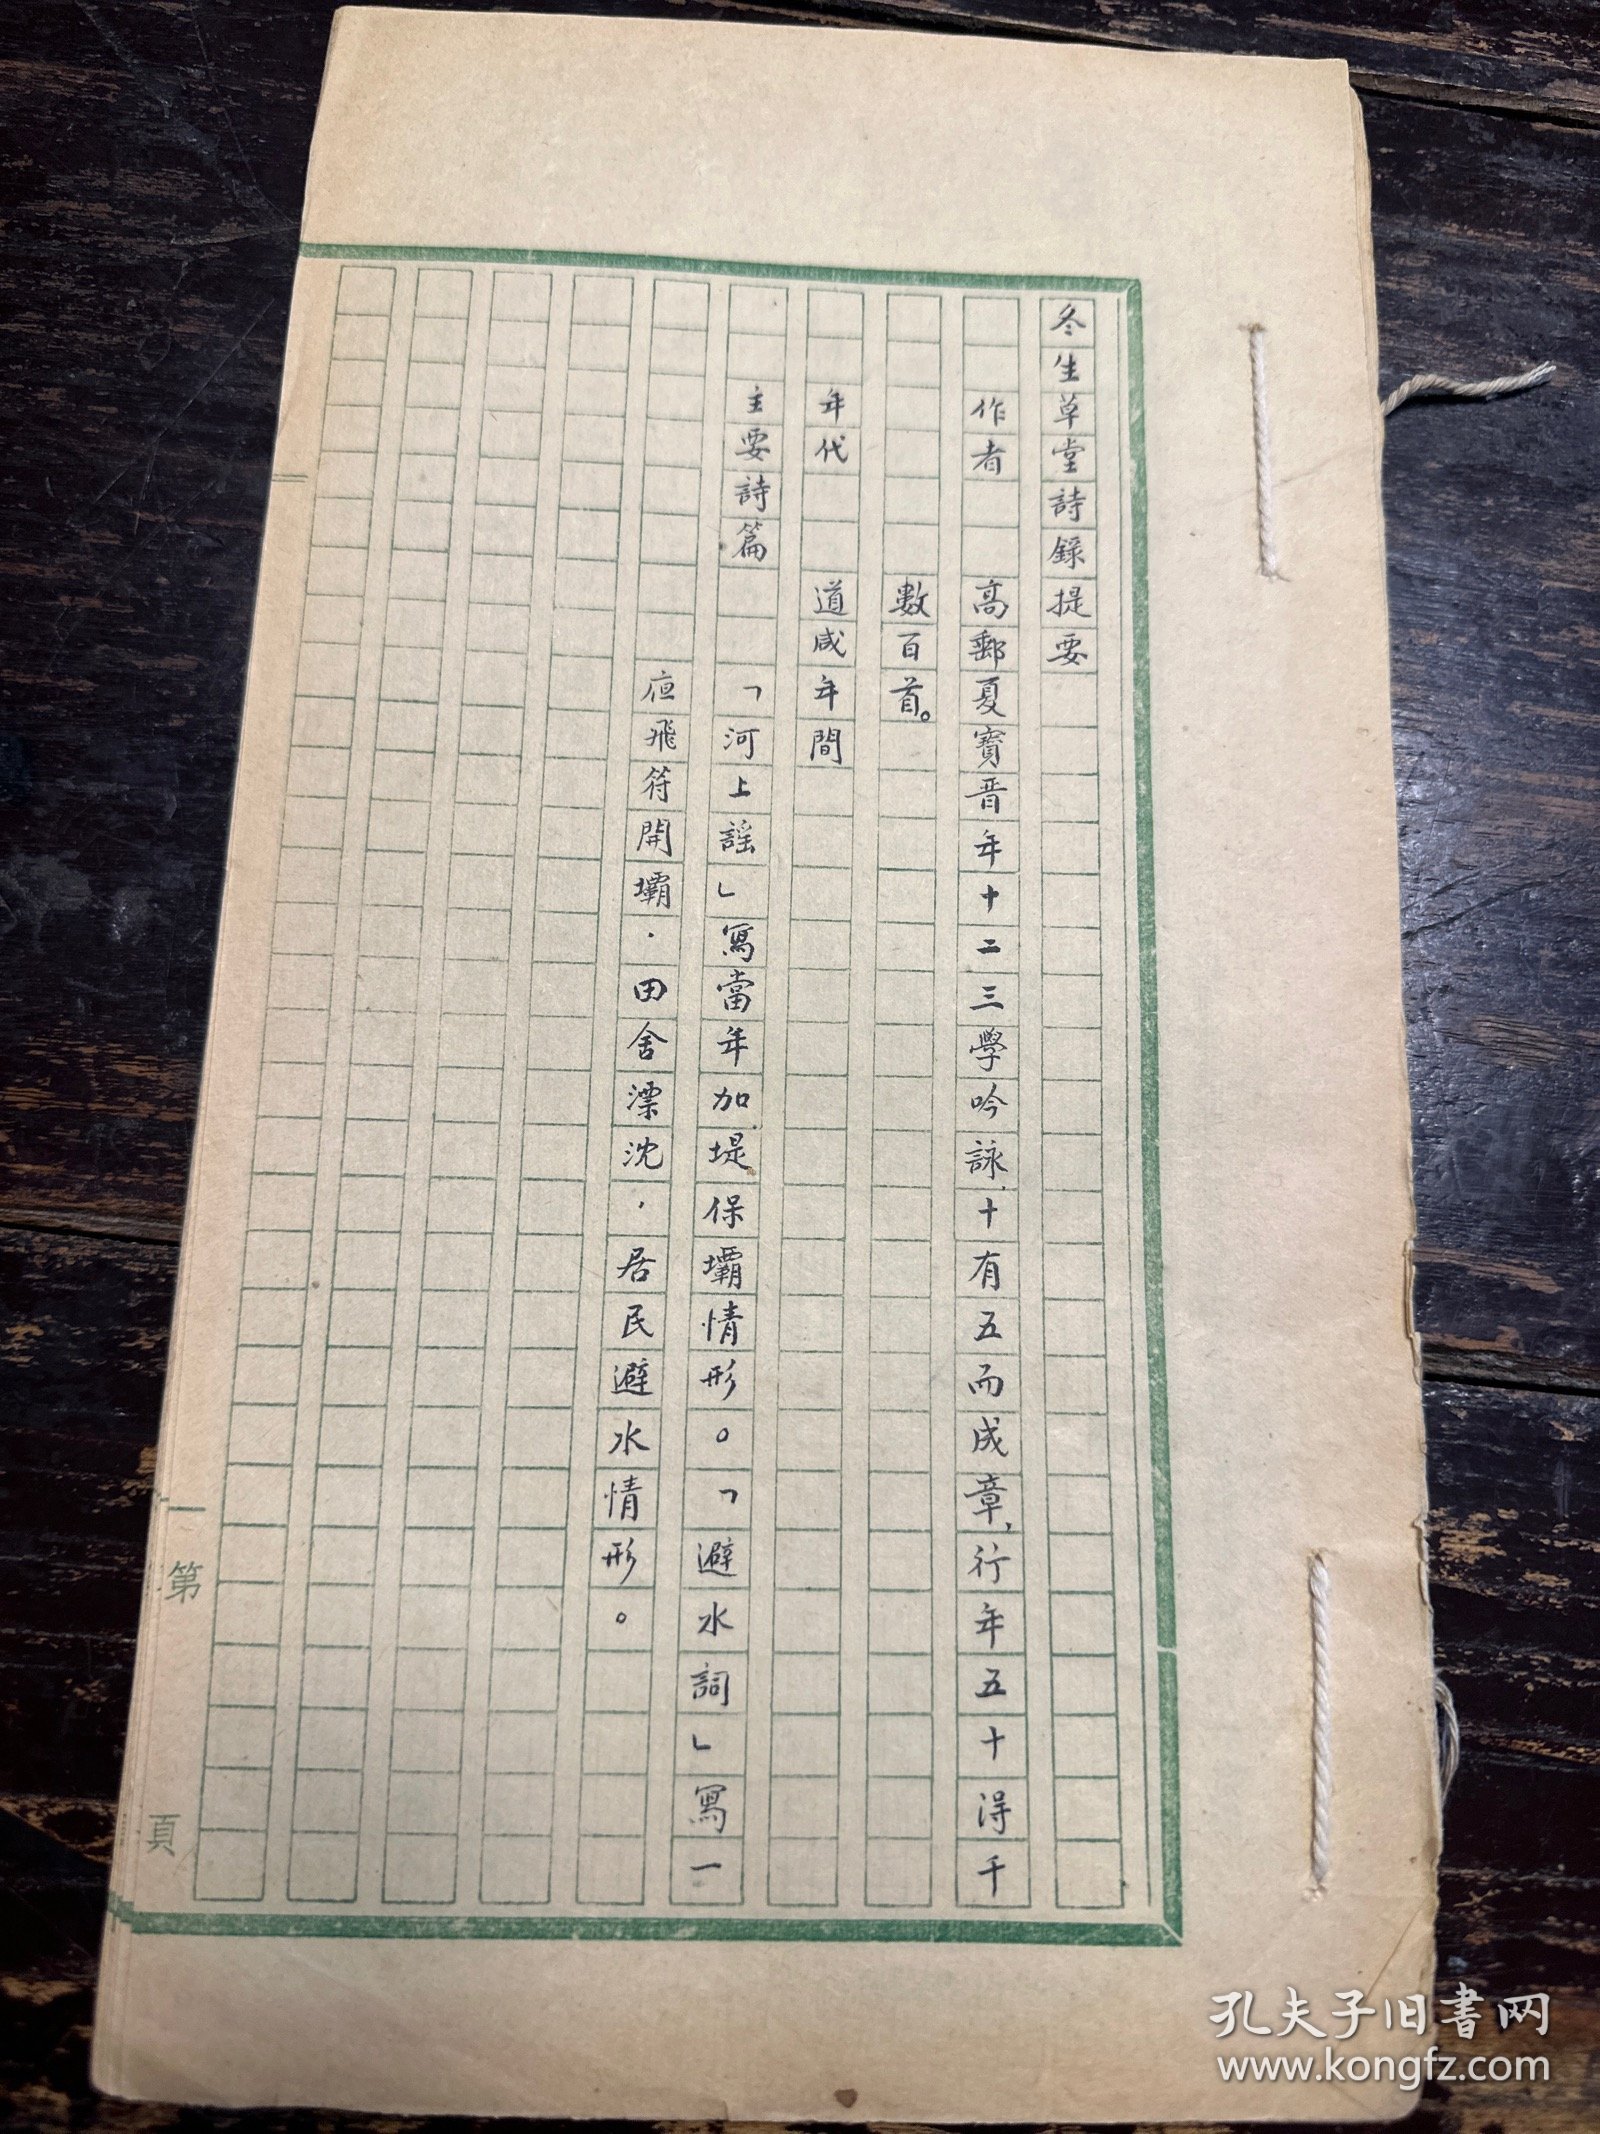 冬生草堂詩録提要
作者 高郵夏寳晋年十二三學吟詠,十有五而成章,行年五十得千
數百首。
年代 道咸年間
主要詩篇 「河上謡」寫當年加堤保壩情形。「避水詞」寫一
夜飛符開壩,田舍漂沈,居民避水情形。
第 頁
孔夫子旧书网
www.kongfz.com